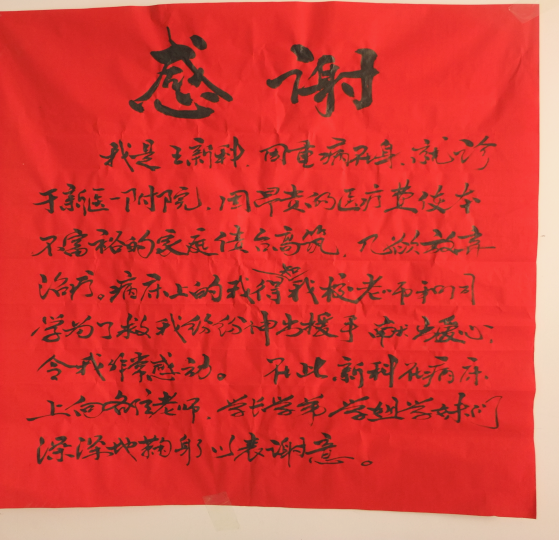 感谢
我是王新科，因重病在身，就诊
于新医一附院，因昂贵的医疗费使本
不富裕的家庭债台高筑，几欲放弃
治疗。病床上的我得知我校老师和同
学为了救我纷纷伸出援手，献出爱心，
令我非常感动。 在此，新科在病床
上向各位老师，学长学弟，学姐学妹们
深深地鞠躬以表谢意。